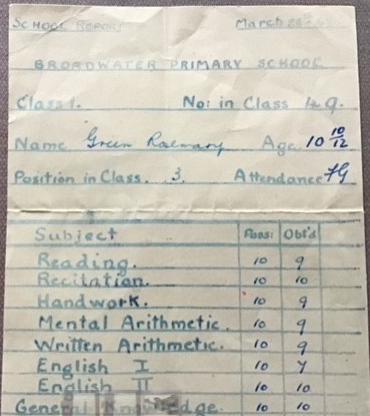 SCHOOL REPORT March
BROADWATER PRIMARY SCHOOL
Class 1. No: in Class 49.
Name Green Age 10 10/12
Position in Class. 3. Attendance
Subject Poss: Obt'd
Reading. 10 9
Recitation. 10 10
Handwork. 10 9
Mental Arithmetic. 10 9
Written Arithmetic. 10 9
English I 10 7
English II 10 10
General Knowledge. 10 10